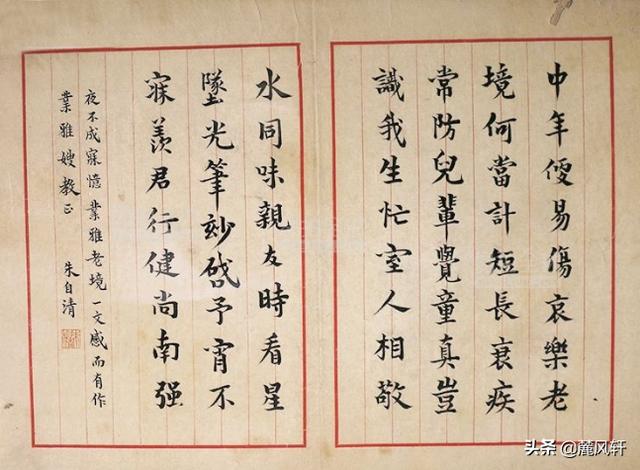 中年便易傷哀樂老
境何當計短長衰疾
常防兒輩覺童真豈
識我生忙室人相敬
水同味親友時看星
墜光筆妙啓予宵不
寐羨君行健尚南强
夜不成寐憶業雅老境一文感而有作
業雅嫂教正 朱自清
头条 @麓风轩